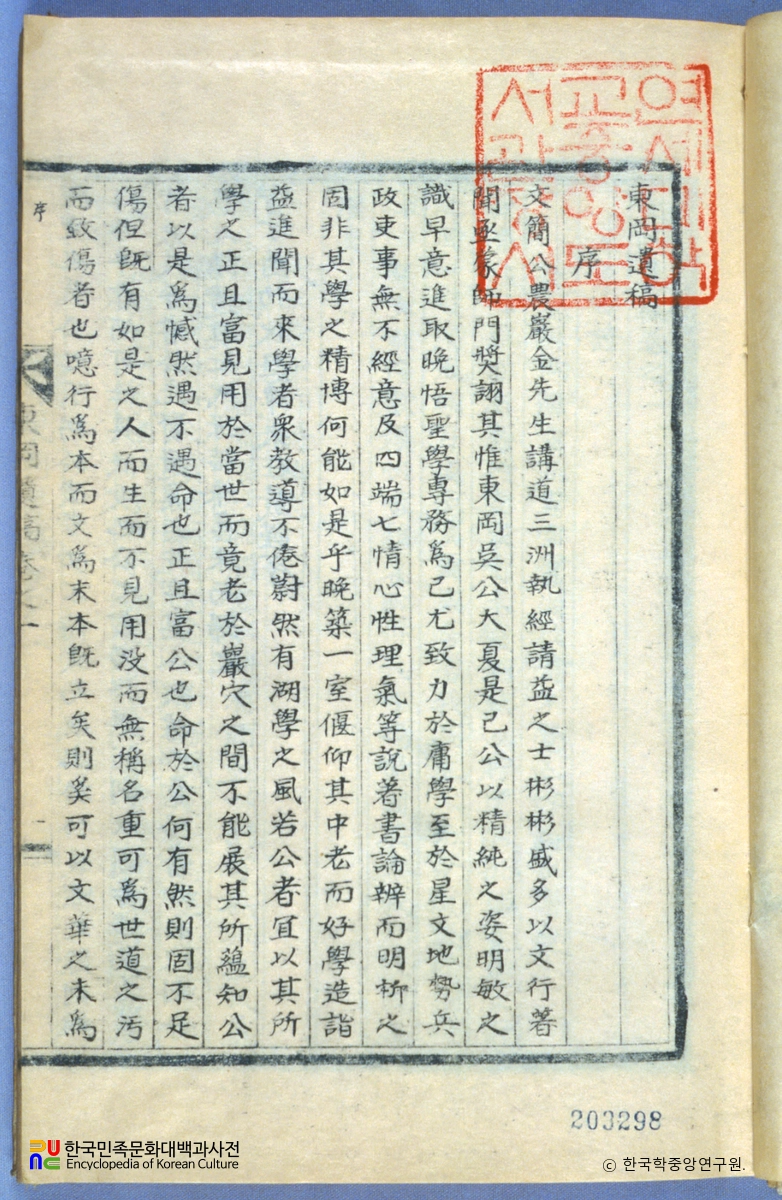 연세대학
교중앙도
서관장서
東岡遺稿
序
文簡公農巖金先生講道三洲執經請益之士彬彬盛多以文行著
聞亟蒙師門奬詡其惟東岡吳公大夏是已公以精純之姿明敏之
識早意進取晩悟聖學專務爲己尤致力於庸學至於星文地勢兵
政吏事無不經意及四端七情心性理氣等說著書論辨而明柝之
固非其學之精博何能如是乎晩築一室偃仰其中老而好學造詣
益進聞而來學者衆教導不倦蔚然有湖學之風若公者冝以其所
學之正且富見用於當世而竟老於巖穴之間不能展其所蘊知公
者以是爲憾然遇不遇命也正且富公也命於公何有然則固不足
傷但旣有如是之人而生而不見用没而無稱名重可爲世道之汚
而致傷者也噫行爲本而文爲末本旣立矣則奚可以文華之末爲
序
東岡遺稿卷之一
一
203298
한국민족문화대백과사전
Encyclopedia of Korean Culture
ⓒ 한국학중앙연구원.